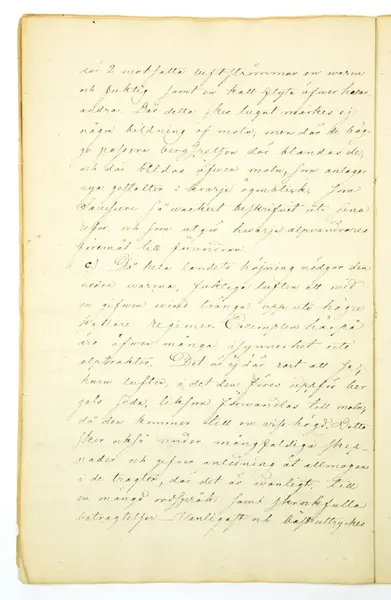 där 2 motsatta luftströmmar en warm
och fuktig samt en kall flyta öfwer hwar
andra. Där detta sker lugnt märkes ej
någon bildning af moln, men där de båg-
ge passera bergspetsar där blandas de,
och där bildas äfwen moln, som antager
nya gestalter i hwarje ögonblick. Som
Saussure så wackert beskrifvit uti sina
resor, och som utgör hwarje alpvandrares
föremål till förundran.
c) Då hela landets höjning nödgar den
nedre warma, fuktiga luften att wid
en gifwen wind tränga upp uti högre
kallare regioner. Exemplen härpå
äro äfwen många isynnerhet uti
alptrakter. Det är ej där rart att se,
huru luften, i det den föres uppför ber-
gets sida, liksom förwandlas till moln,
då den kommer till en wiss höjd. Detta
sker också under mångfaldiga skep-
nader och gifver anledning åt allmogen
i de trakter, där det är wanligt, till
en mängd ordspråk samt skrockfulla
betragtelser. Vanligast och bäst uttryckes